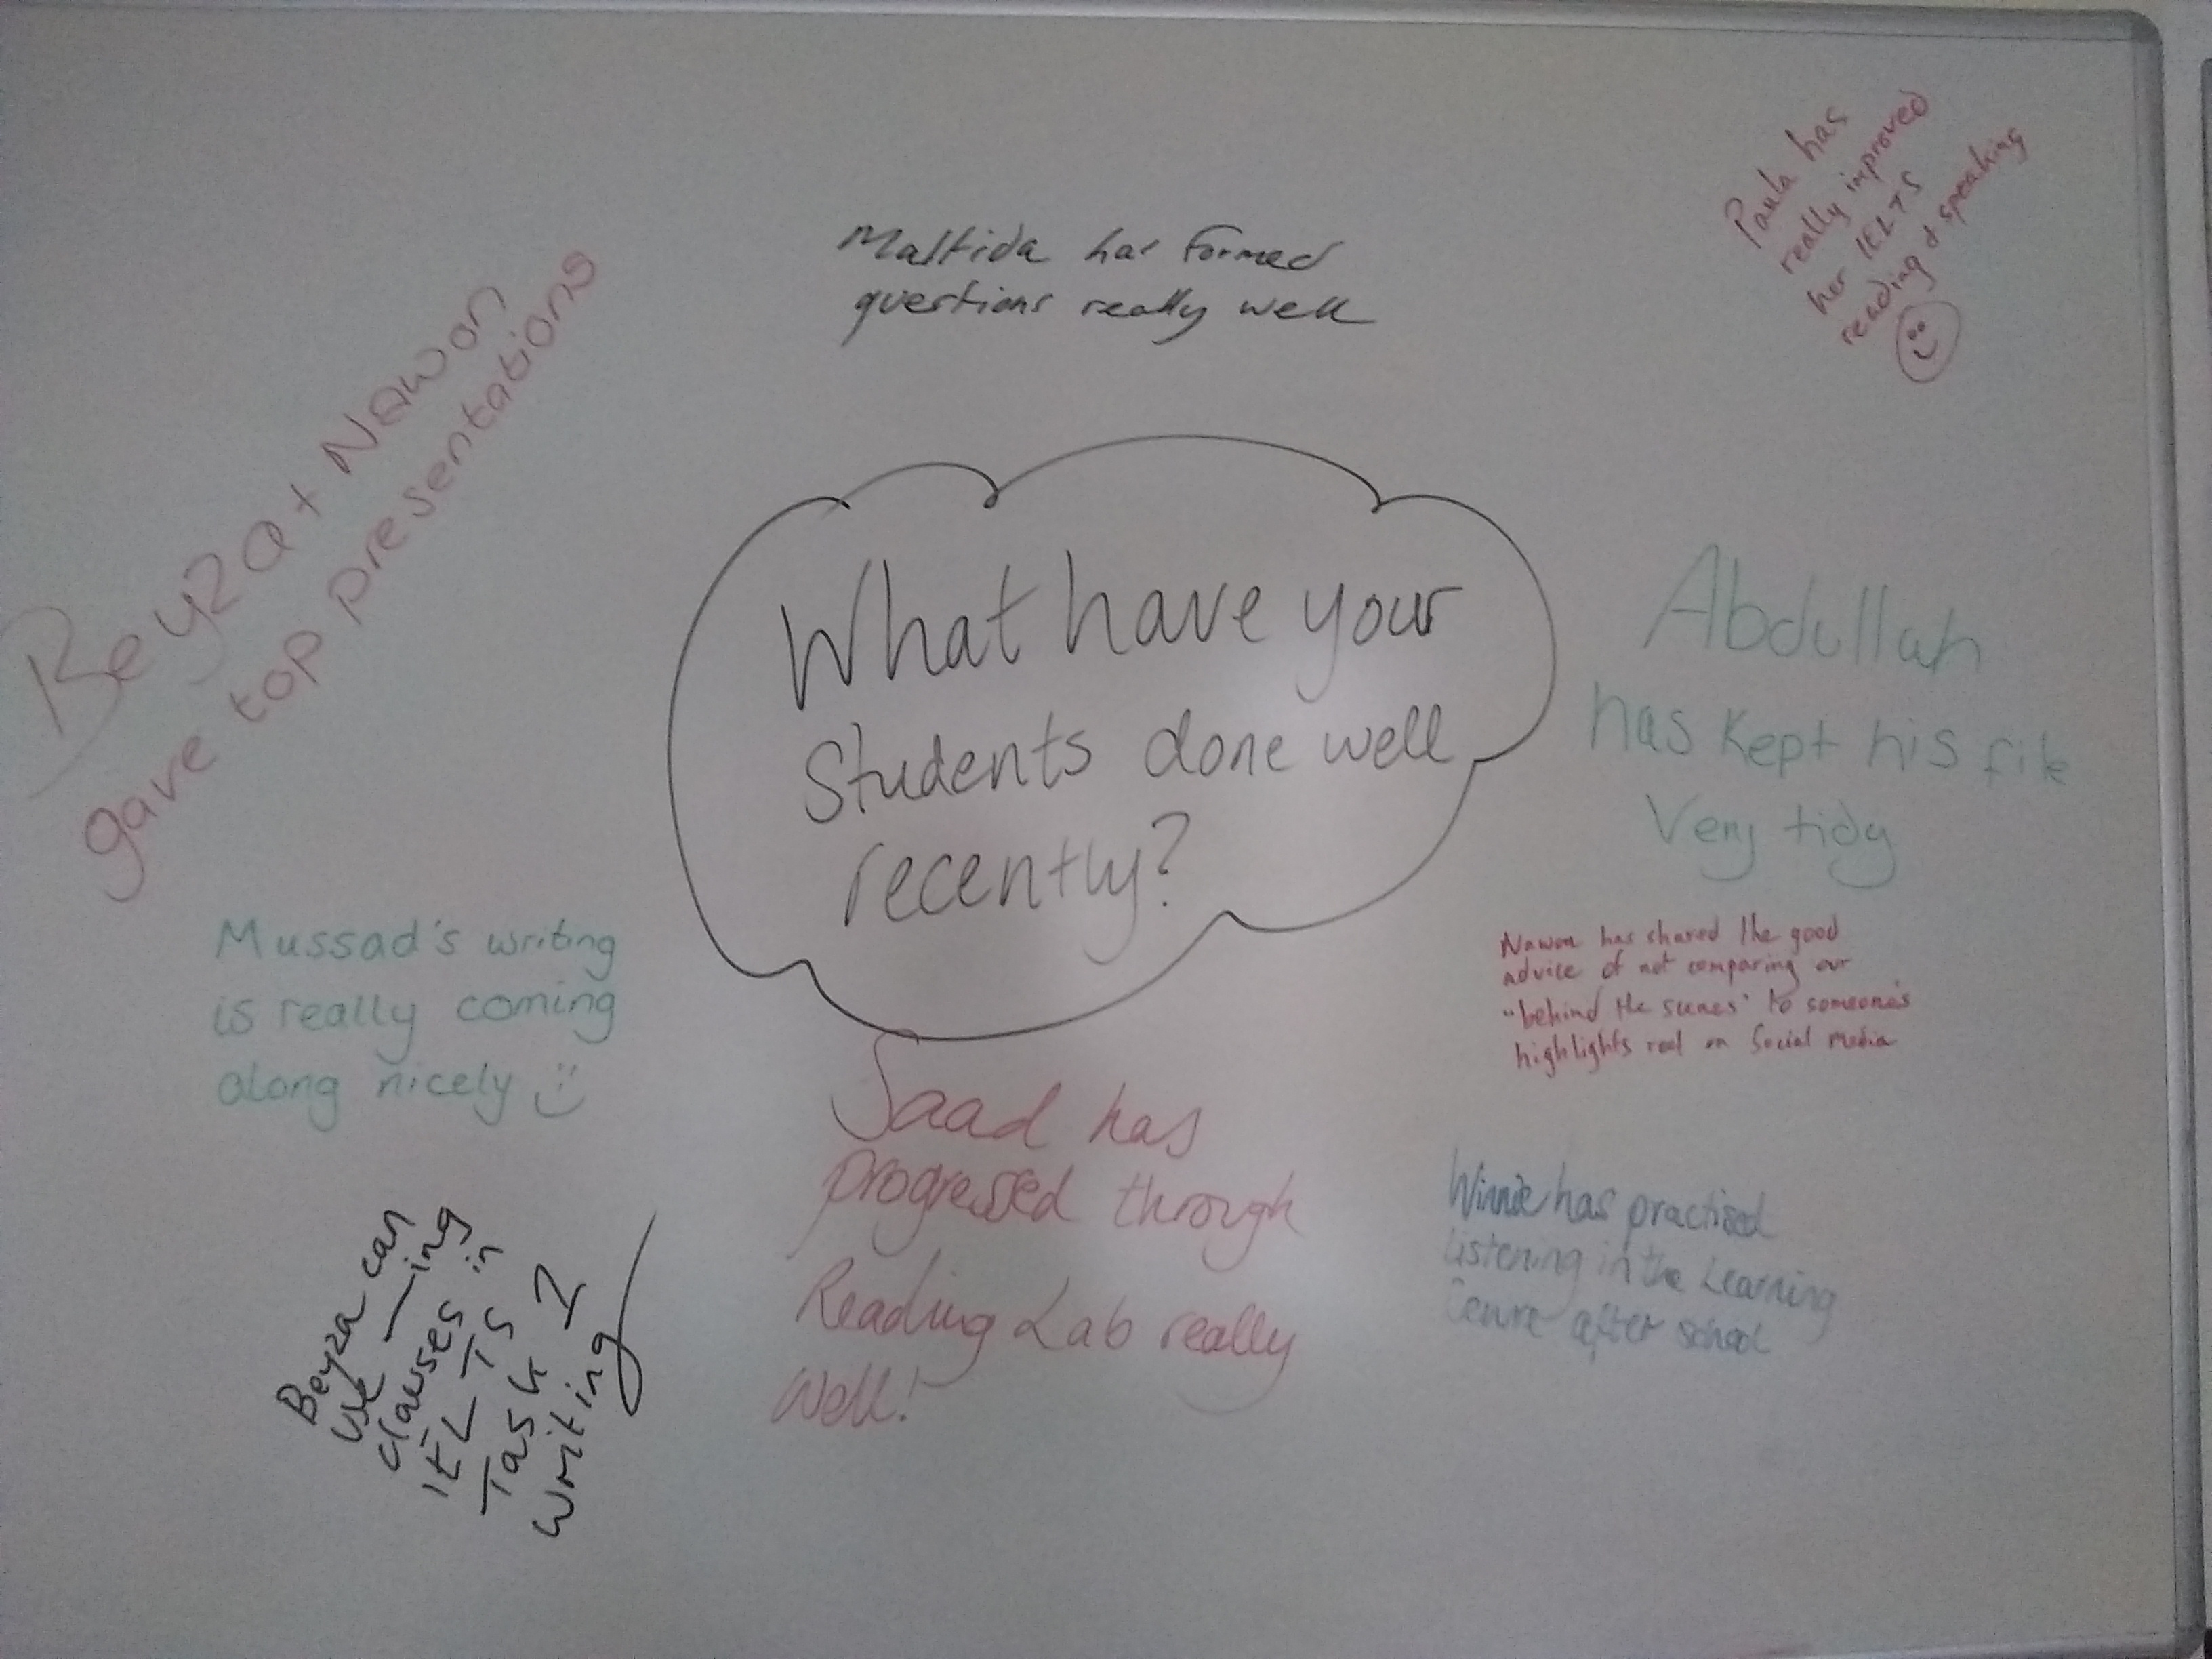 What have your
Students done well
recently?
Maltida has formed
questions really well
Paula has
really improved
her IELTS
reading & speaking
Beyza + Nawon
gave top presentations
Abdullah
has kept his file
Very tidy
Mussad's writing
is really coming
along nicely
Nawon has shared the good
advice of not comparing our
"behind the scenes" to someone's
highlights reel on Social media
Saad has
progressed through
Reading Lab really
well!
Winnie has practised
Listening in the Learning
Centre after school
Beyza can
use -ing
clauses in
IELTS
Task
writing